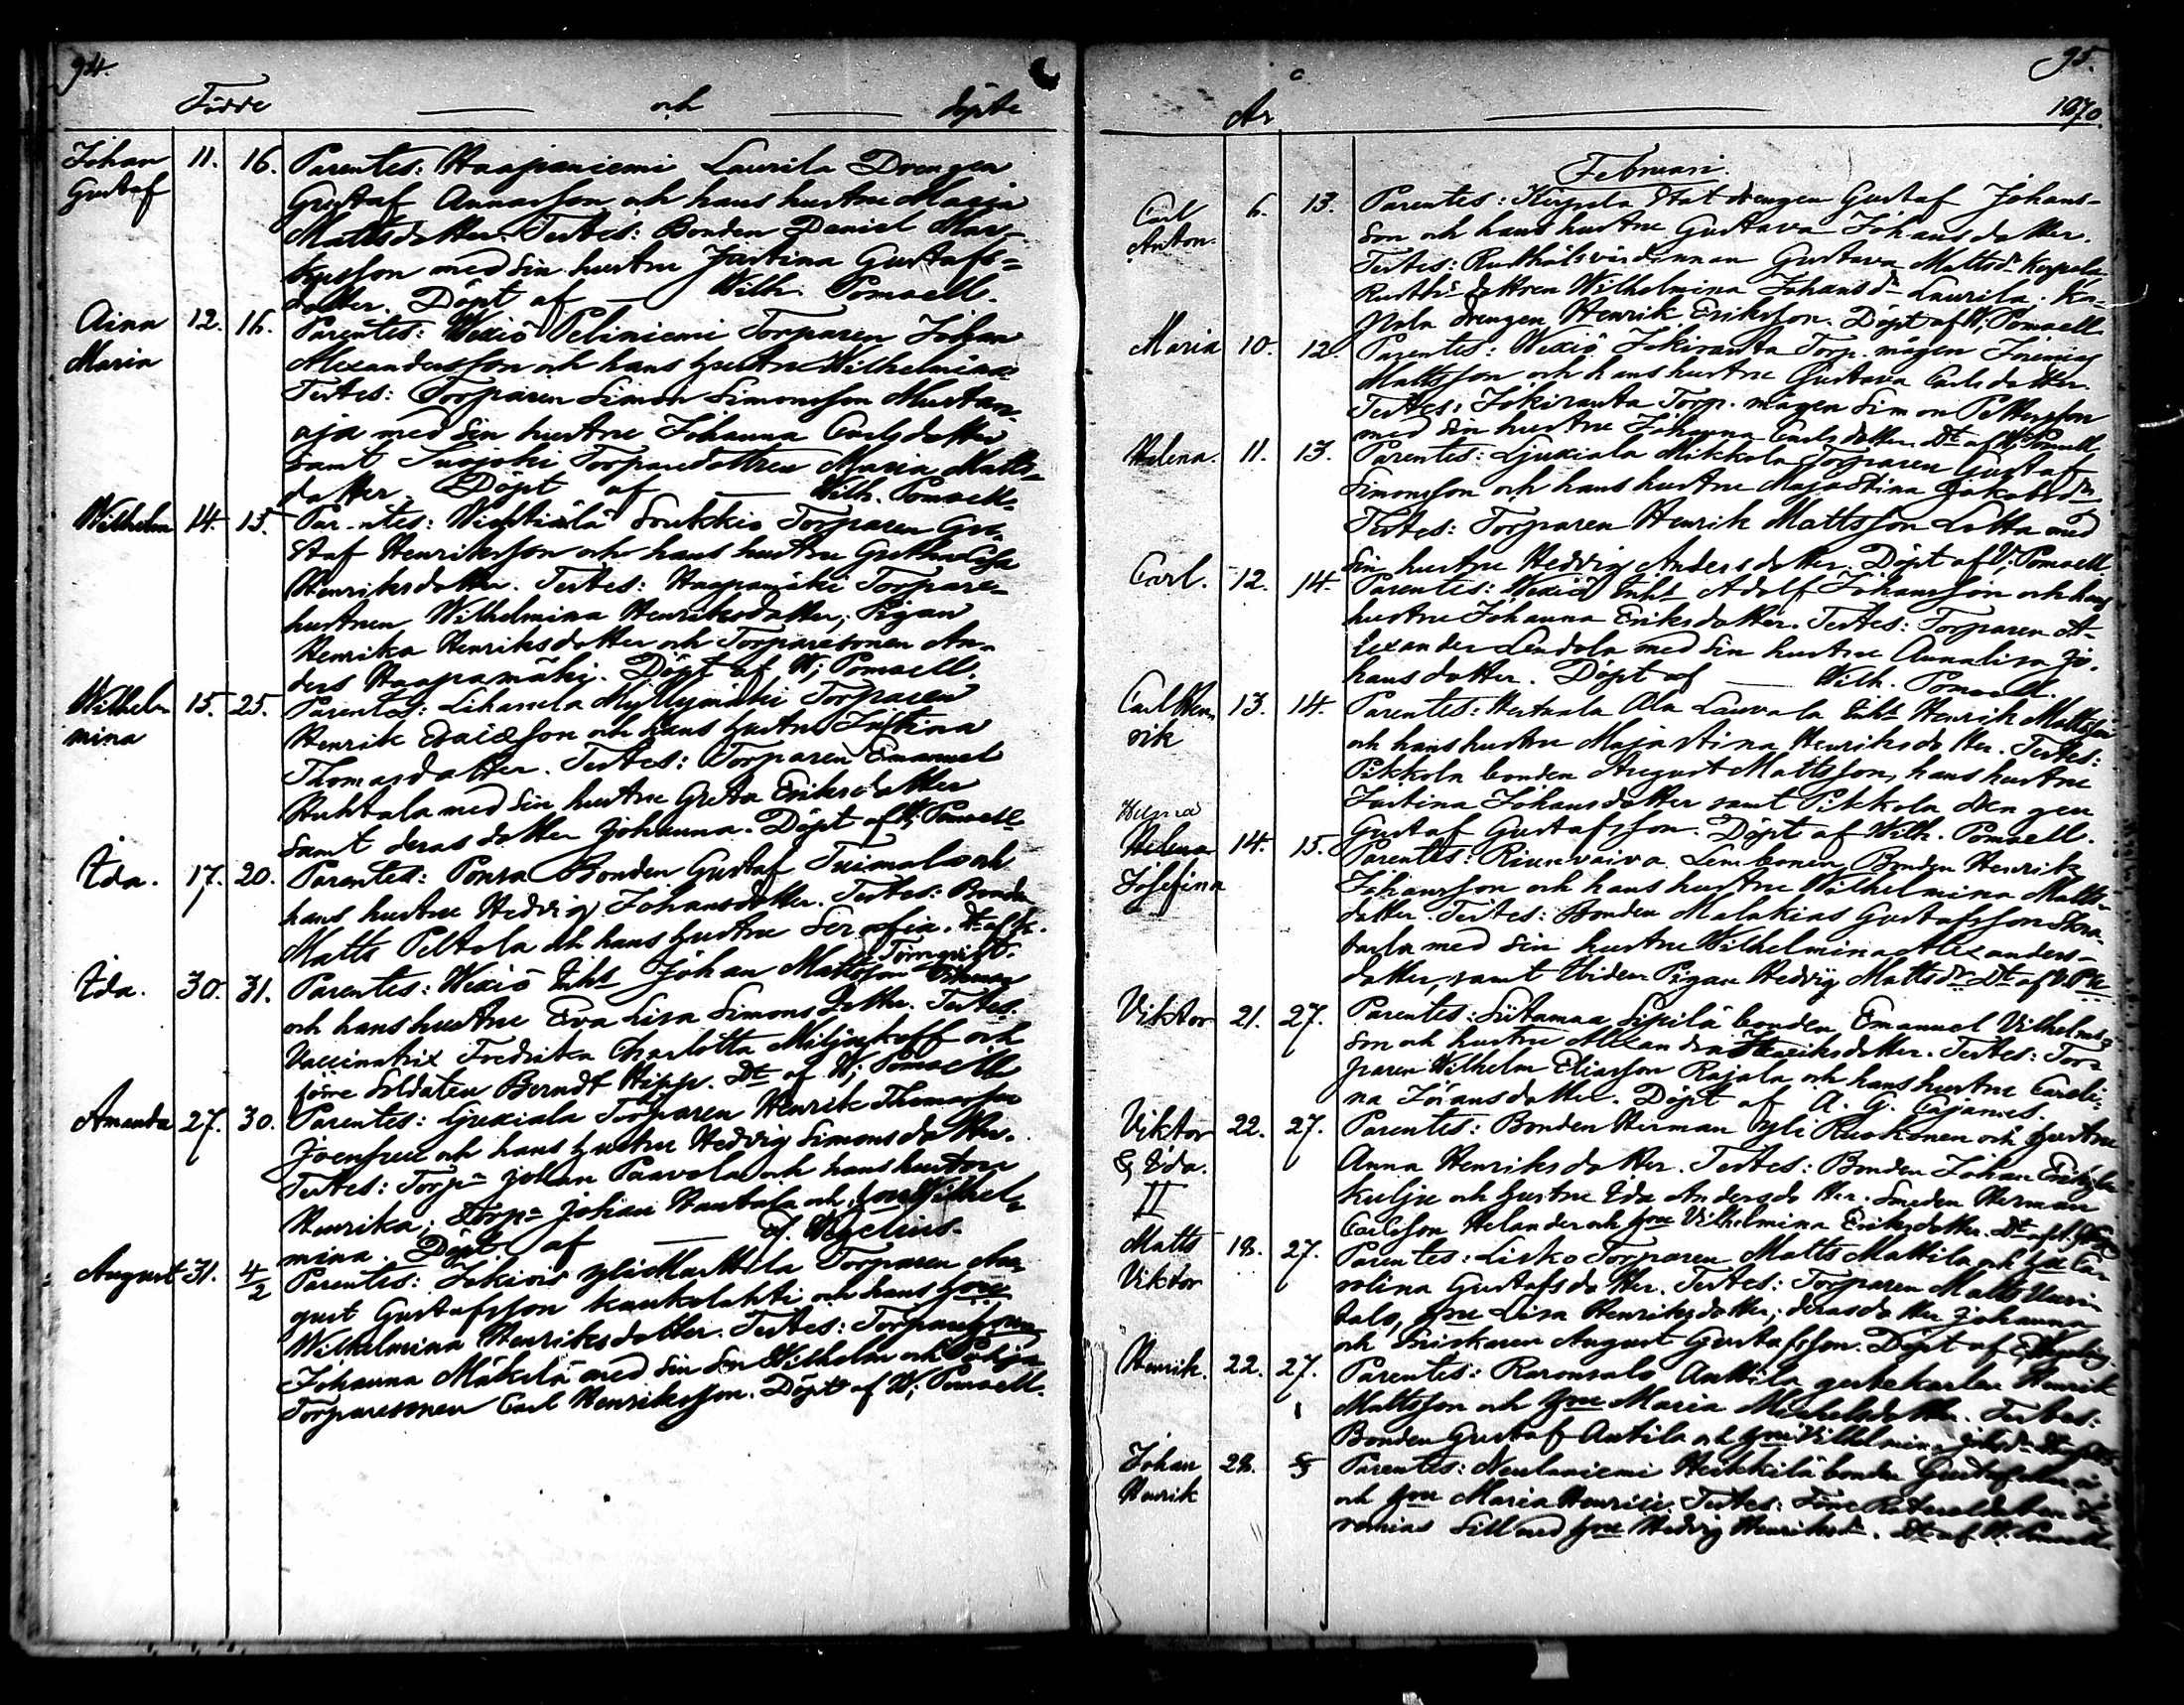 94.
Födde och döpte
Johan 11. 16. Parentes: Haapaniemi Laurila Drengen
Gustaf Gustaf Annasson och hans hustru Maria
Mattsdotter. Testes: Bonden Daniel Mar-
kusson med sin hustru Justina Gustafs=
dotter. Döpt af — Wilh. Pomoell.
Aina 12. 16. Parentes: Wexiö Peliniemi Torparen Johan
Maria Alexandersson och hans hustru Wilhelmina
Testes: Torparen Simon Simonsson Mustan-
oja med sin hustru Johanna Carlsdotter
samt Suojoki Torparedottren Maria Matts-
dotter. Döpt af — Wilh. Pomoell.
Wilhelm 14. 15. Parentes: Wichtiälä Soukkio Torparen Gu-
staf Henriksson och hans hustru Gustava Cajsa
Henriksdotter. Testes: Haapamäki Torpare-
hustrun Wilhelmina Henriksdotter, Pigan
Henrika Henriksdotter och Torparesonen An-
ders Haapamäki. Döpt af W; Pomoell.
Wilhel- 15. 25. Parentes: Lihasula Myllymäki Torparen
mina Henrik Ericsson och hans hustru Justina
Thomasdotter. Testes: Torparen Emanuel
Huhtala med sin hustru Greta Eriksdotter
samt deras dotter Johanna. Döpt af W; Pomoell
Ida. 17. 20. Parentes: Ponsa Bonden Gustaf Tuimala och
hans hustru Hedvig Johansdotter. Testes: Bonden
Matts Peltola och hans hustru Serafia. Dt af
Törnqvist.
Ida. 30. 31. Parentes: Wexiö Inhs Johan Mattsson
och hans hustru Eva Lisa Simonsdotter. Testes:
Vaccinatrix Fredrika Charlotta Miljukoff och
förre Soldaten Berndt Hipp. Dt af W; Pomoell
Amanda 27. 30. Parentes: Ljuxiala Torparen Henrik Thomasson
Joensuu och hans hustru Hedvig Simonsdotter.
Testes: Torpn Johan Paavola och hans hustru
Henrika; Torpn Johan Hautala och hru Wilhel-
mina. Döpt af — J. Wegelius.
August 31. 4/2 Parentes: Jokiois yliMarttila Torparen Au-
gust Gustafsson kaukolahti och hans hru
Wilhelmina Henriksdotter. Testes: Torpare hrun
Johanna Mäkelä med sin Son Wilhelm och
Torparesonen Carl Henriksson. Döpt af W; Pomoell.
95.
År 1870.
Februari.
Carl 6. 13. Parentes: Kirppula Stat drengen Gustaf Johans-
Anton. son och hans hustru Gustava Johansdotter.
Testes: Rusthålsvärdinnan Gustava Mattsdr
Rusth: dottren Wilhelmina Johansdr Laurila. Ka-
pala drengen Henrik Eriksson. Döpt af W; Pomoell
Maria 10. 12. Parentes: Wexiö Jokiranta Torp. mågen Jeremias
Mattsson och hans hustru Gustava Carlsdotter.
Testes: Jokiranta Torp. mågen Simon Pettersson
med sin hustru Johanna Carlsdotter. Dt af W; Pomoell
Helena. 11. 13. Parentes: Ljuxiala Mikkola Torparen Gustaf
Simonsson och hans hustru Majastina Jakobsdr
Testes: Torparen Henrik Mattsson Lotta med
sin hustru Hedvig Andersdotter. Döpt af W. Pomoell.
Carl. 12. 14. Parentes: Wexiö Inhs Adolf Johansson och hans
hustru Johanna Eriksdotter. Testes: Torparen A-
lexander Lindola med sin hustru Annalisa Jo-
hansdotter. Döpt af — Wilh. Pomoell.
Carl Hen- 13. 14. Parentes: Hertuala Ala Lauvala Inhs Henrik Mattsson
rik och hans hustru Majastina Henriksdotter. Testes:
Pikkola bonden August Mattsson, hans hustru
Justina Johansdotter samt Pikkola drengen
Gustaf Gustafsson. Döpt af Wilh. Pomoell.
Helena 14. 15. Parentes: Riunvaiva Lembonen Bonden Henrik
Josefina Johansson och hans hustru Wilhelmina Matts-
dotter. Testes: Bonden Malakias Gustafsson
med sin hustru Wilhelmina Alexanders-
dotter, samt Ibidem Pigan Hedvig Mattsdr Dt af
Viktor 21. 27. Parentes: Siitamaa Sipilä bonden Emanuel Vilhelms-
son och hustru Alexandra Henriksdotter. Testes: Tor-
paren Wilhelm Eliasson Rajala och hans hustru Caroli-
na Johansdotter. Döpt af A. G. Cajanus.
Viktor 22. 27. Parentes: Bonden Herman yli Ruokonen och hustru
& Ida. Anna Henriksdotter. Testes: Bonden Johan
II Kulju och hustru Ida Andersdotter. Smeden Herman
Carlsson Helander och hru Vilhelmina Eriksdotter. Dt af
Matts 18. 27. Parentes: Lisko Torparen Matts Mattila och hru Ca-
Viktor rolina Gustafsdotter. Testes: Torparen Matts Uusi-
talo, hru Lisa Henriksdotter; deras dotter Johanna
och Snickaren August Gustafsson. Döpt af
Henrik. 22. 27. Parentes: Raronsalo Anttila gerbekarlen Henrik
Mattsson och hru Maria Michelsdotter. Testes:
Bonden Gustaf Antila och hru Vilhelmina
Johan 28. 5/3 Parentes: Neulaniemi Heikkilä bonden Gustaf
Henrik och hru Maria Henrici. Testes: Förre
remias Sill med hru Hedvig Henriksdr. Dt af W. Pomoell.